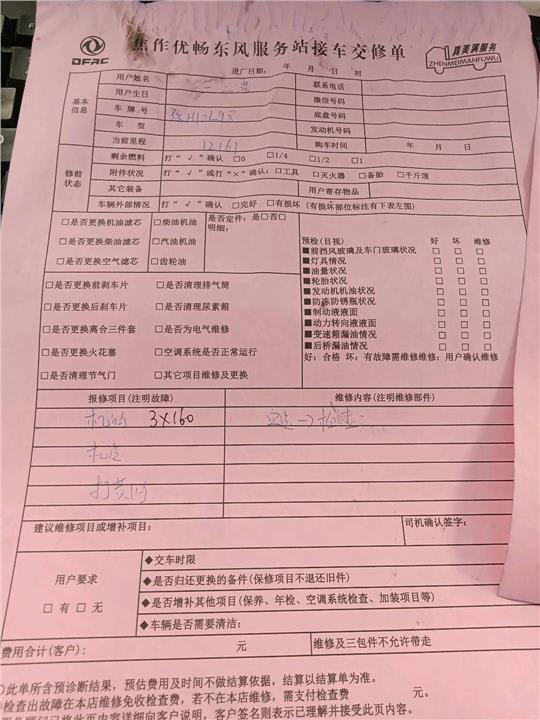 DFAC
焦作优畅东风服务站接车交修单
真美满服务
ZHENMEIMANFUWU
进厂日期： 年 月 日 时
基本信息
用户姓名
联系电话
用户生日
微信号码
车牌号
底盘号码
车型
发动机号码
当前里程 12161
购车时间 年 月 日
修前状态
剩余燃料 打“√”确认 □0 □1/4 □1/2 □1
附件状况 打“√”或打“×”确认：□工具 □灭火器 □备胎 □千斤顶
其它装备
用户寄存物品
车辆外部情况 打“√”确认 □完好 □有损坏（有损坏部位标注有下表左图）
□是否更换机油滤芯 □柴油机油 是否定件：是□否□
□是否更换柴油滤芯 □汽油机油 明细：
□是否更换空气滤芯 □齿轮油
□是否更换前刹车片 □是否清理排气筒
□是否更换后刹车片 □是否清理尿素箱
□是否更换离合三件套 □是否为电气维修
□是否更换火花塞 □空调系统是否正常运行
□是否清理节气门 □其它项目维修及更换
预检（目视） 好 坏 维修
■前挡风玻璃及车门玻璃状况 □ □ □
■灯具情况 □ □ □
■油量状况 □ □ □
■轮胎状况 □ □ □
■发动机机油状况 □ □ □
■防冻防锈瓶状况 □ □ □
■制动液液面 □ □ □
■动力转向液液面 □ □ □
■变速箱漏油情况 □ □ □
■后桥漏油情况 □ □ □
好：合格 坏：有故障需维修维修：用户确认维修
报修项目（注明故障）
维修内容（注明维修部件）
3×160
建议维修项目或增补项目：
司机确认签字：
用户要求
□有 □无
◆交车时限
◆是否归还更换的备件（保修项目不退还旧件）
◆是否增补其他项目（保养、年检、空调系统检查、加装项目等）
◆车辆是否需要清洁：
费用合计（客户）： 元
维修及三包件不允许带走
）此单所含预诊断结果，预估费用及时间不做结算依据，结算以结算单为准。
检查出故障在本店维修免收检查费，若不在本店维修，需支付检查费 元。
务顾问已将此页内容详细向客户说明，客户签名则表示已理解并接受此页内容。